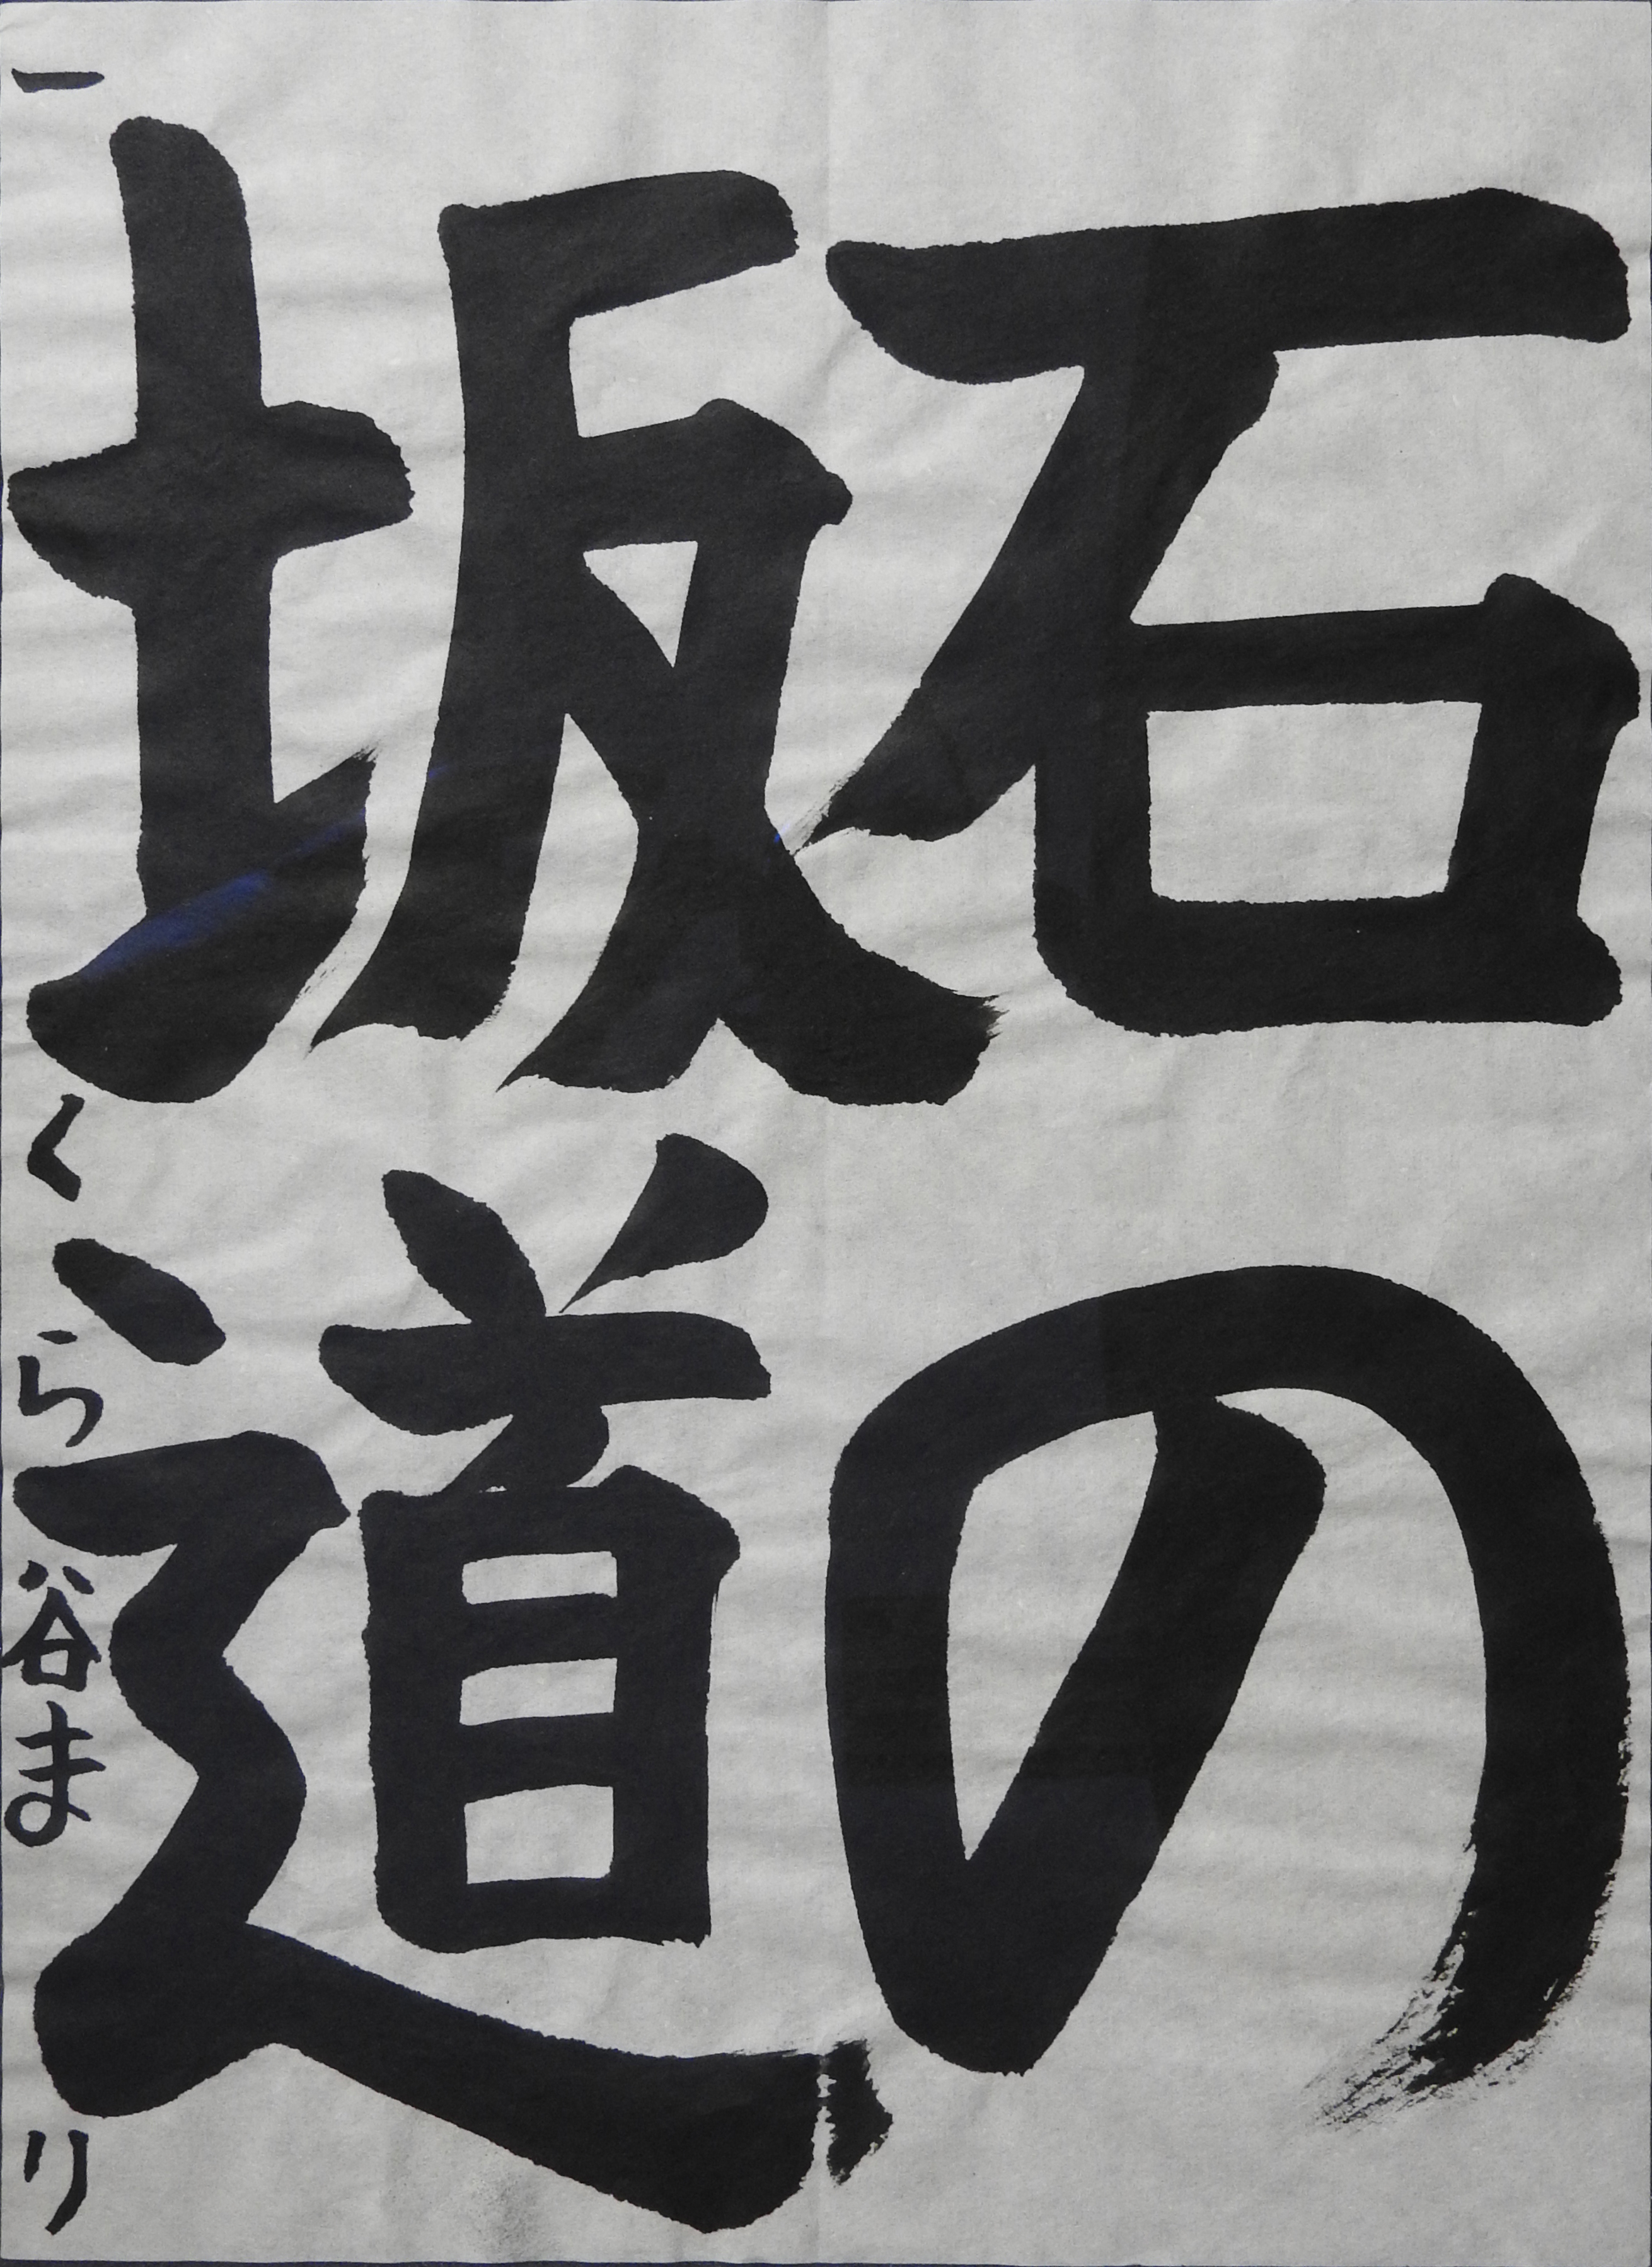 石の
坂道
一くら 谷まり